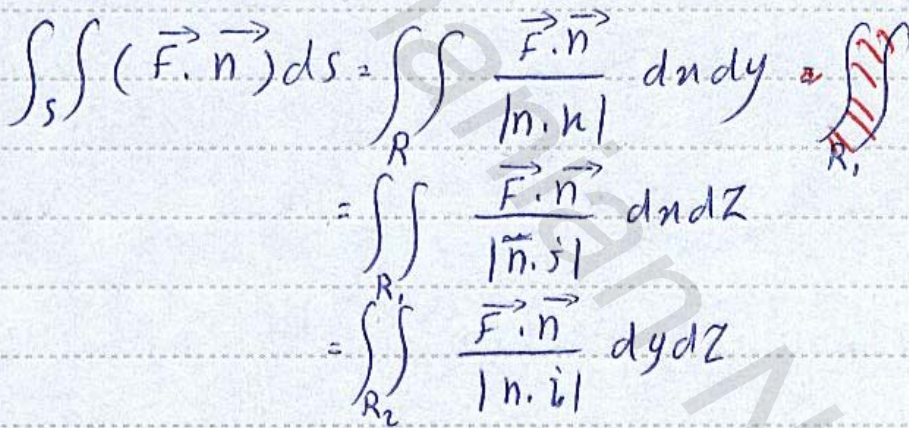 ∫∫_S (F⃗ . n⃗) ds = ∫∫_R F⃗ . n⃗ / |n . k| dxdy = ∫∫_R₁
= ∫∫_R₁ F⃗ . n⃗ / |n̄ . j| dxdz
= ∫∫_R₂ F⃗ . n⃗ / |n . i| dydz